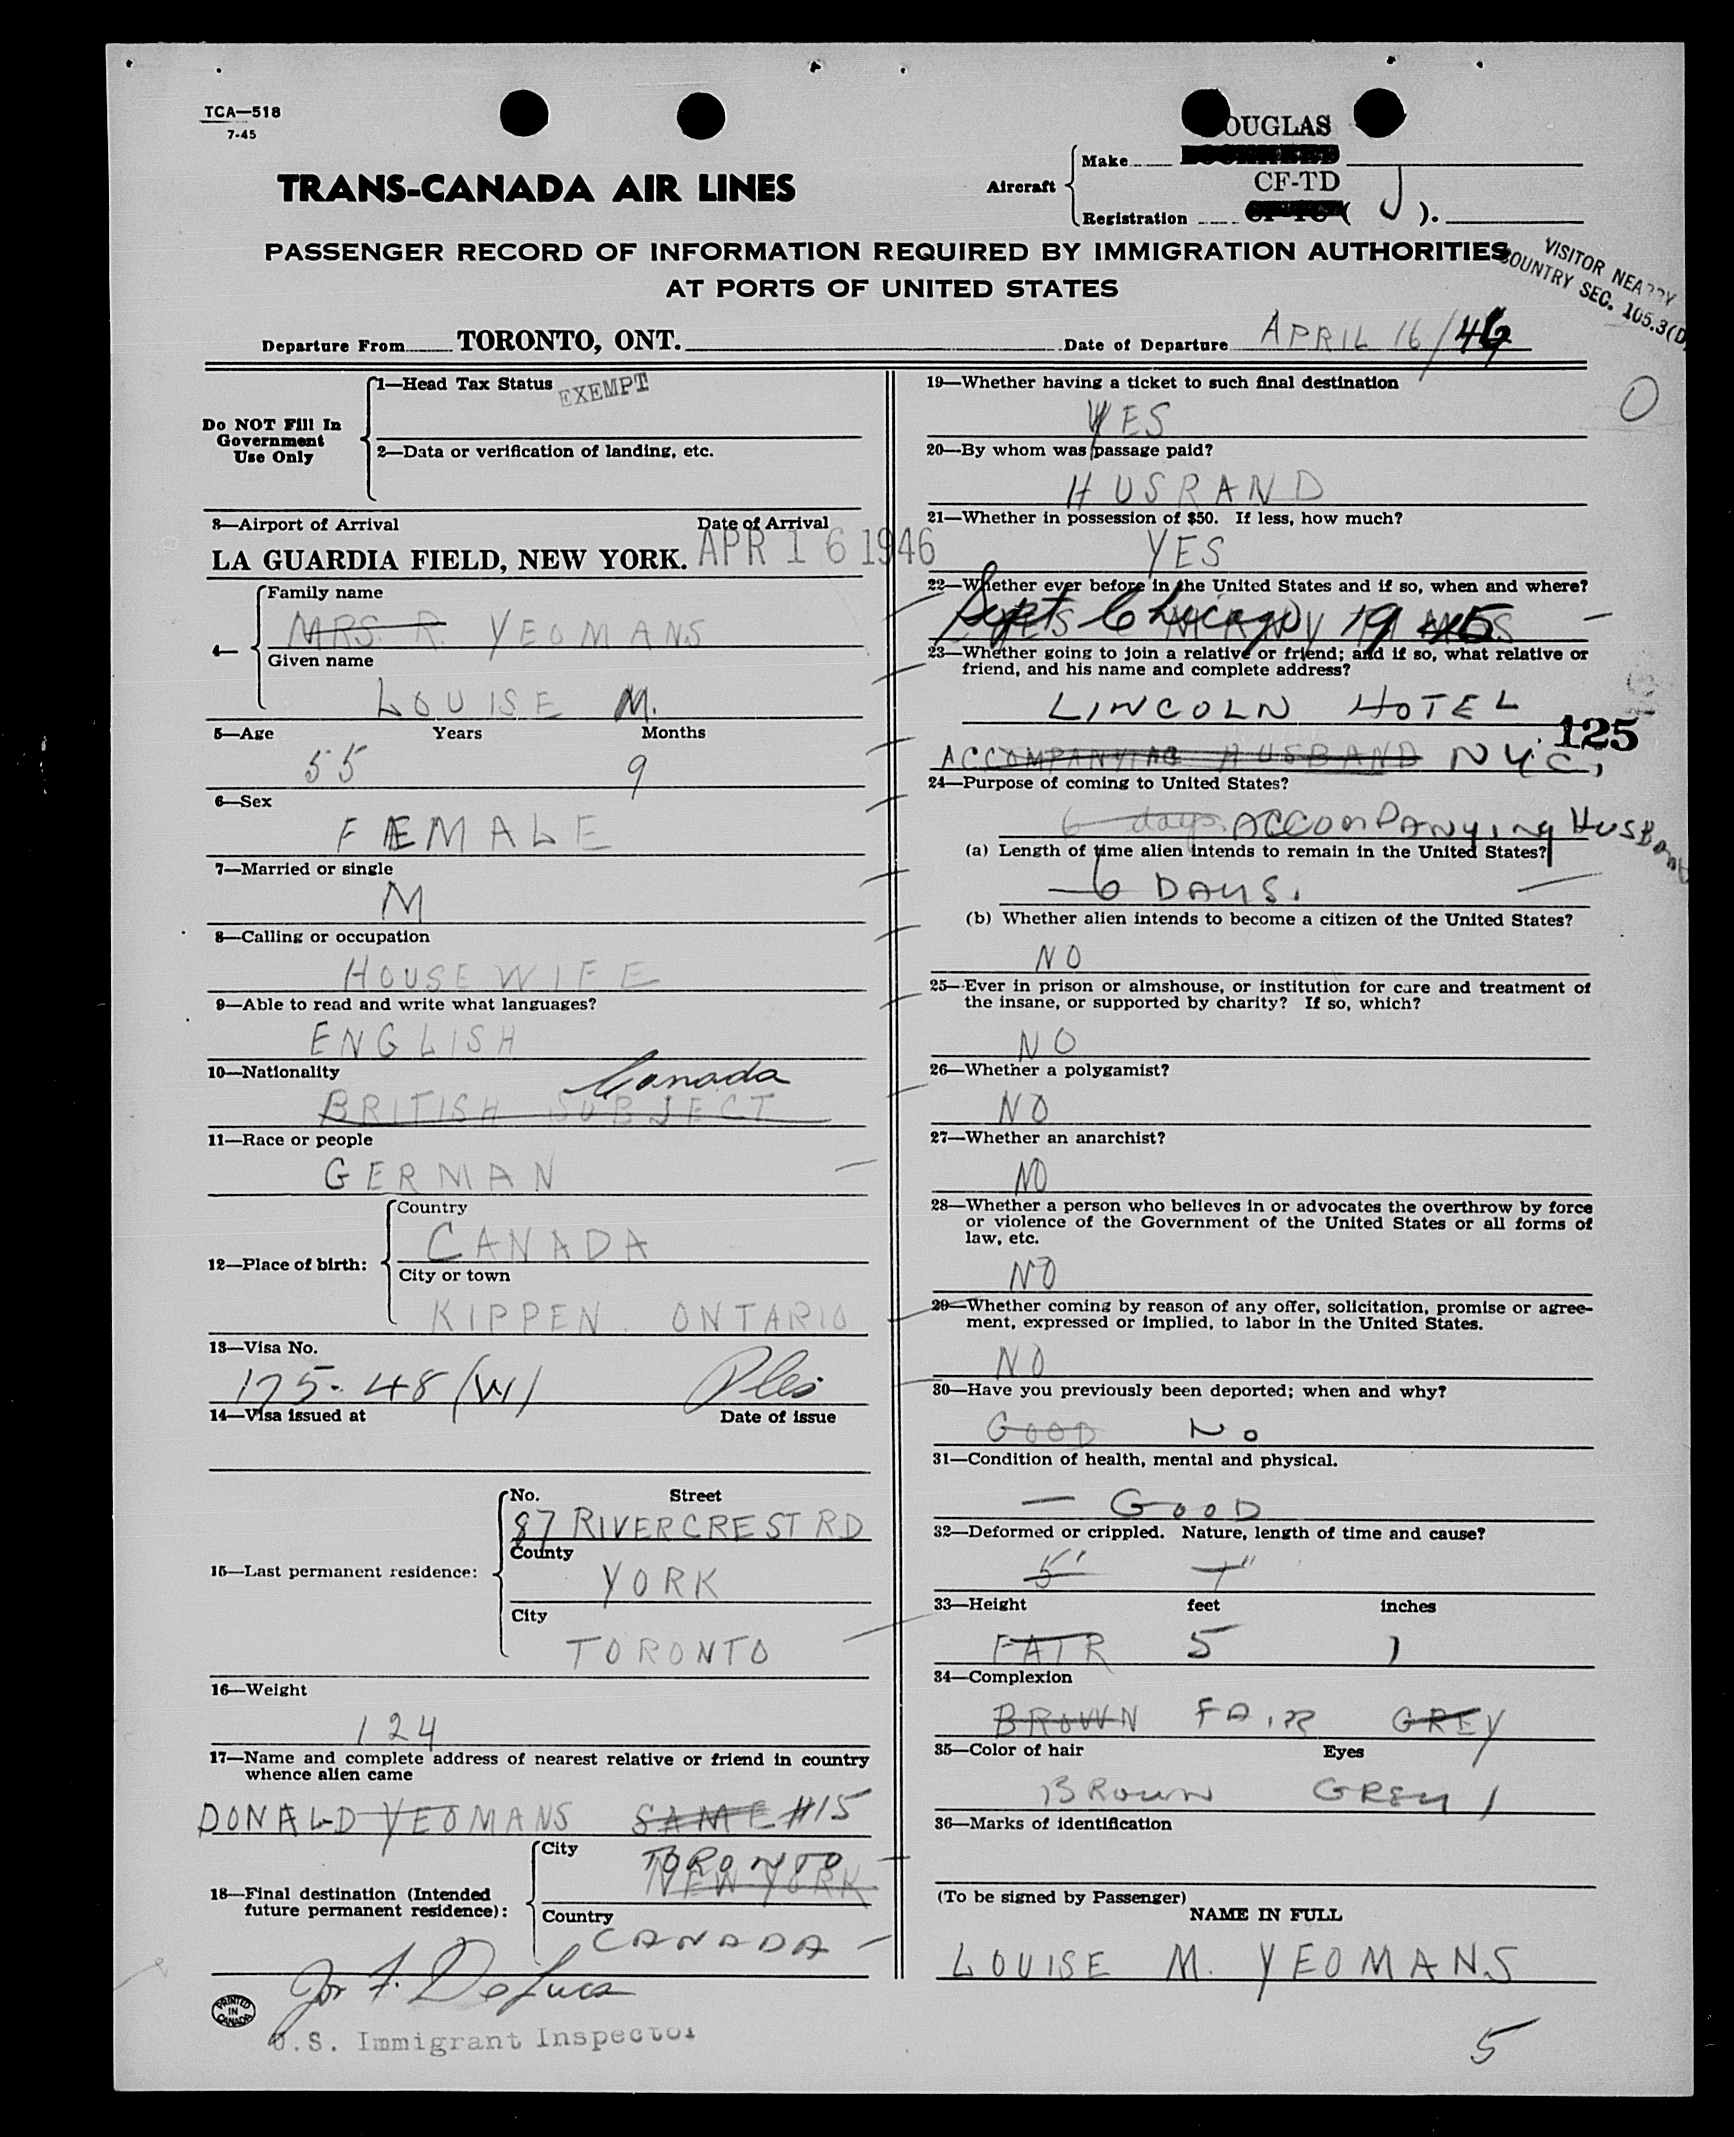 TCA—518
7-45
OUGLAS
TRANS-CANADA AIR LINES
Aircraft
Make
CF-TD
Registration ( J ).
PASSENGER RECORD OF INFORMATION REQUIRED BY IMMIGRATION AUTHORITIES
AT PORTS OF UNITED STATES
VISITOR NEARBY
COUNTRY SEC. 105.3(D)
Departure From TORONTO, ONT. Date of Departure APRIL 16/46
Do NOT Fill In
Government
Use Only
1—Head Tax Status EXEMPT
2—Data or verification of landing, etc.
3—Airport of Arrival Date of Arrival
LA GUARDIA FIELD, NEW YORK. APR 16 1946
4—
Family name
MRS. R. YEOMANS
Given name
LOUISE M.
5—Age Years Months
55 9
6—Sex
FEMALE
7—Married or single
M
8—Calling or occupation
HOUSEWIFE
9—Able to read and write what languages?
ENGLISH
10—Nationality
Canada
BRITISH SUBJECT
11—Race or people
GERMAN
12—Place of birth:
Country
CANADA
City or town
KIPPEN. ONTARIO
13—Visa No.
175-48 (W)
14—Visa issued at Date of issue
15—Last permanent residence:
No. Street
87 RIVERCREST RD
County
YORK
City
TORONTO
16—Weight
124
17—Name and complete address of nearest relative or friend in country
whence alien came
DONALD YEOMANS SAME #15
18—Final destination (Intended
future permanent residence):
City
TORONTO
NEW YORK
Country
CANADA
Jos F. DeLuca
U.S. Immigrant Inspector
PRINTED
IN
CANADA
19—Whether having a ticket to such final destination
YES
O
20—By whom was passage paid?
HUSBAND
21—Whether in possession of $50. If less, how much?
YES
22—Whether ever before in the United States and if so, when and where?
YES MANY TIMES
Sept Chicago 1945
23—Whether going to join a relative or friend; and if so, what relative or
friend, and his name and complete address?
LINCOLN HOTEL
125
ACCOMPANYING HUSBAND NYC,
24—Purpose of coming to United States?
6 days. ACCOMPANYING HUSBAND
(a) Length of time alien intends to remain in the United States?
6 DAYS.
(b) Whether alien intends to become a citizen of the United States?
NO
25—Ever in prison or almshouse, or institution for care and treatment of
the insane, or supported by charity? If so, which?
NO
26—Whether a polygamist?
NO
27—Whether an anarchist?
NO
28—Whether a person who believes in or advocates the overthrow by force
or violence of the Government of the United States or all forms of
law, etc.
NO
29—Whether coming by reason of any offer, solicitation, promise or agree-
ment, expressed or implied, to labor in the United States.
NO
30—Have you previously been deported; when and why?
GOOD No
31—Condition of health, mental and physical.
— GOOD
32—Deformed or crippled. Nature, length of time and cause?
5' 1"
33—Height feet inches
FAIR 5 1
34—Complexion
BROWN FAIR GREY
35—Color of hair Eyes
BROWN GREY
36—Marks of identification
(To be signed by Passenger)
NAME IN FULL
LOUISE M. YEOMANS
5